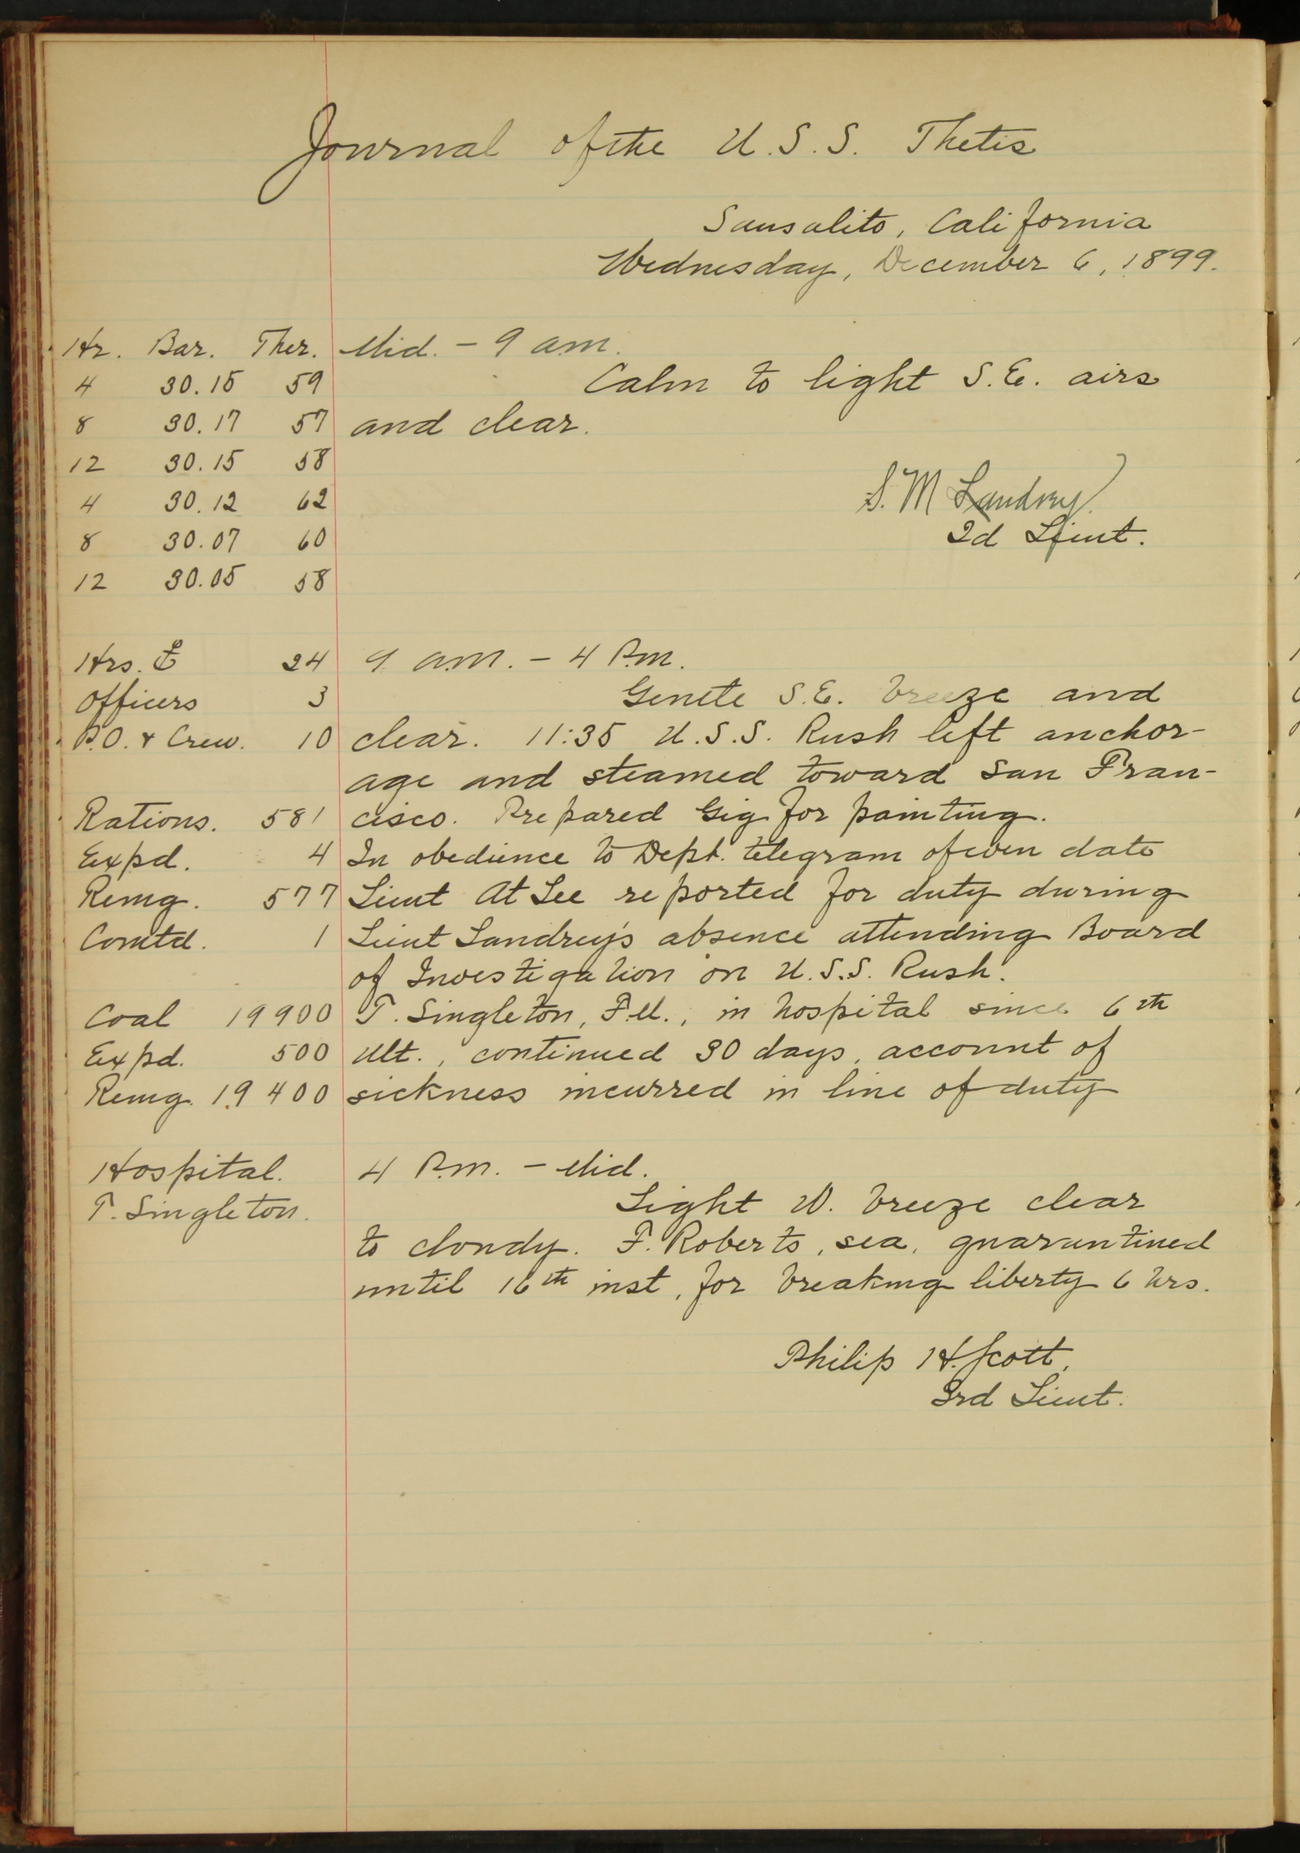 Journal of the U.S.S. Thetis
Sausalito, California
Wednesday, December 6, 1899.
Hr. Bar. Ther.
4 30.15 59
8 30.17 57
12 30.15 58
4 30.12 62
8 30.07 60
12 30.05 58
Hrs. 24
Officers 3
P.O. & Crew. 10
Rations. 581
Expd. 4
Remg. 577
Comtd. 1
Coal 19900
Expd. 500
Remg. 19400
Hospital.
T. Singleton.
Mid. - 9 am.
Calm to light S.E. airs
and clear.
S. M Landrey.
2d Lieut.
9 a.m. - 4 P.m.
Gentle S.E. breeze and
clear. 11:35 U.S.S. Rush left anchor-
age and steamed toward San Fran-
cisco. Prepared Gig for painting.
In obedience to Dept. telegram of even date
Lieut At Lee reported for duty during
Lieut Landrey's absence attending Board
of Investigation on U.S.S. Rush.
T. Singleton, F.M., in hospital since 6th
ult., continued 30 days, account of
sickness incurred in line of duty
4 P.m. - Mid.
Light W. breeze clear
to cloudy. F. Roberts, sea, quarantined
until 16th inst, for breaking liberty 6 hrs.
Philip H. Scott,
3rd Lieut.